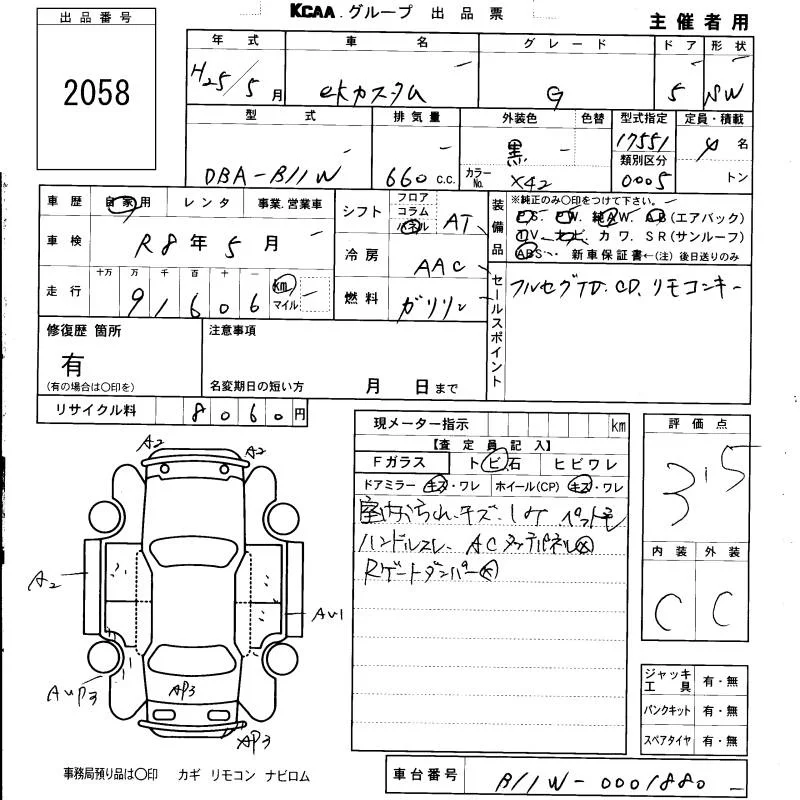 KCAA グループ 出品票
主催者用
出品番号
2058
年式 車名 グレード ドア 形状
H25/5月 ekカスタム G 5 SW
型式 排気量 外装色 色替 型式指定 定員・積載
DBA-B11W 660 C.C. 黒 カラーNo. X42 17551 4名
類別区分 0005 トン
車歴 自家用 レンタ 事業.営業車
車検 R8年5月
走行 十万 万 千 百 十 一 km マイル
91606
シフト フロア コラム パネル AT
冷房 AAC
燃料 ガソリン
装備品 ※純正のみ○印をつけて下さい。
P.S. P.W. 純A.W. A.B(エアバック)
T.V. ナビ. カワ. S R(サンルーフ)
ABS 新車保証書←(注) 後日送りのみ
セールスポイント フルセグTD. CD. リモコンキー
修復歴 箇所 注意事項
有
(有の場合は○印を) 名変期日の短い方 月 日まで
リサイクル料 8060円
現メーター指示 km
【査定員記入】
Fガラス トビ石 ヒビワレ
ドアミラー キズ・ワレ ホイール(CP) キズ・ワレ
室内よごれ.キズ.シミ ペット毛
ハンドルスレ. ACタッチパネル
Rゲートダンパー
評価点
3.5
内装 外装
C C
A2 A2
A2 AU1
AUP3 AP3
AP3
ジャッキ工具 有・無
パンクキット 有・無
スペアタイヤ 有・無
事務局預り品は○印 カギ リモコン ナビロム
車台番号 B11W-0001880